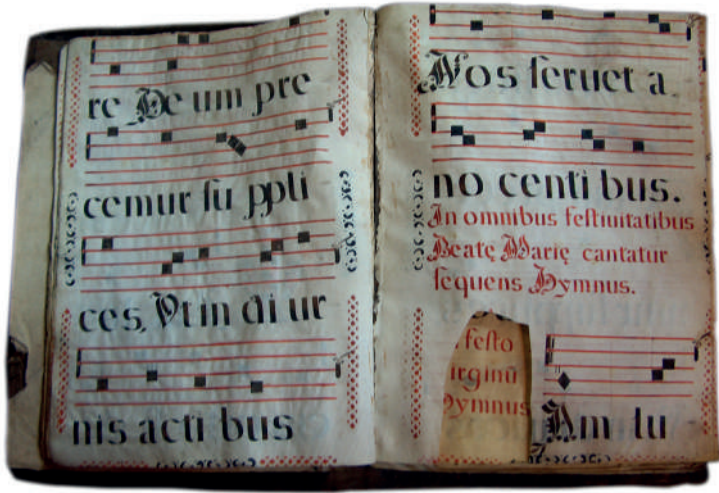 re De um pre
cemur ſu ppli
ces, Vt in di ur
nis acti bus
Nos ſeruet a
no centi bus.
In omnibus feſtiuitatibus
Beatę Marię cantatur
ſequens Hymnus.
feſto
irginū
ymnus
Iam lu